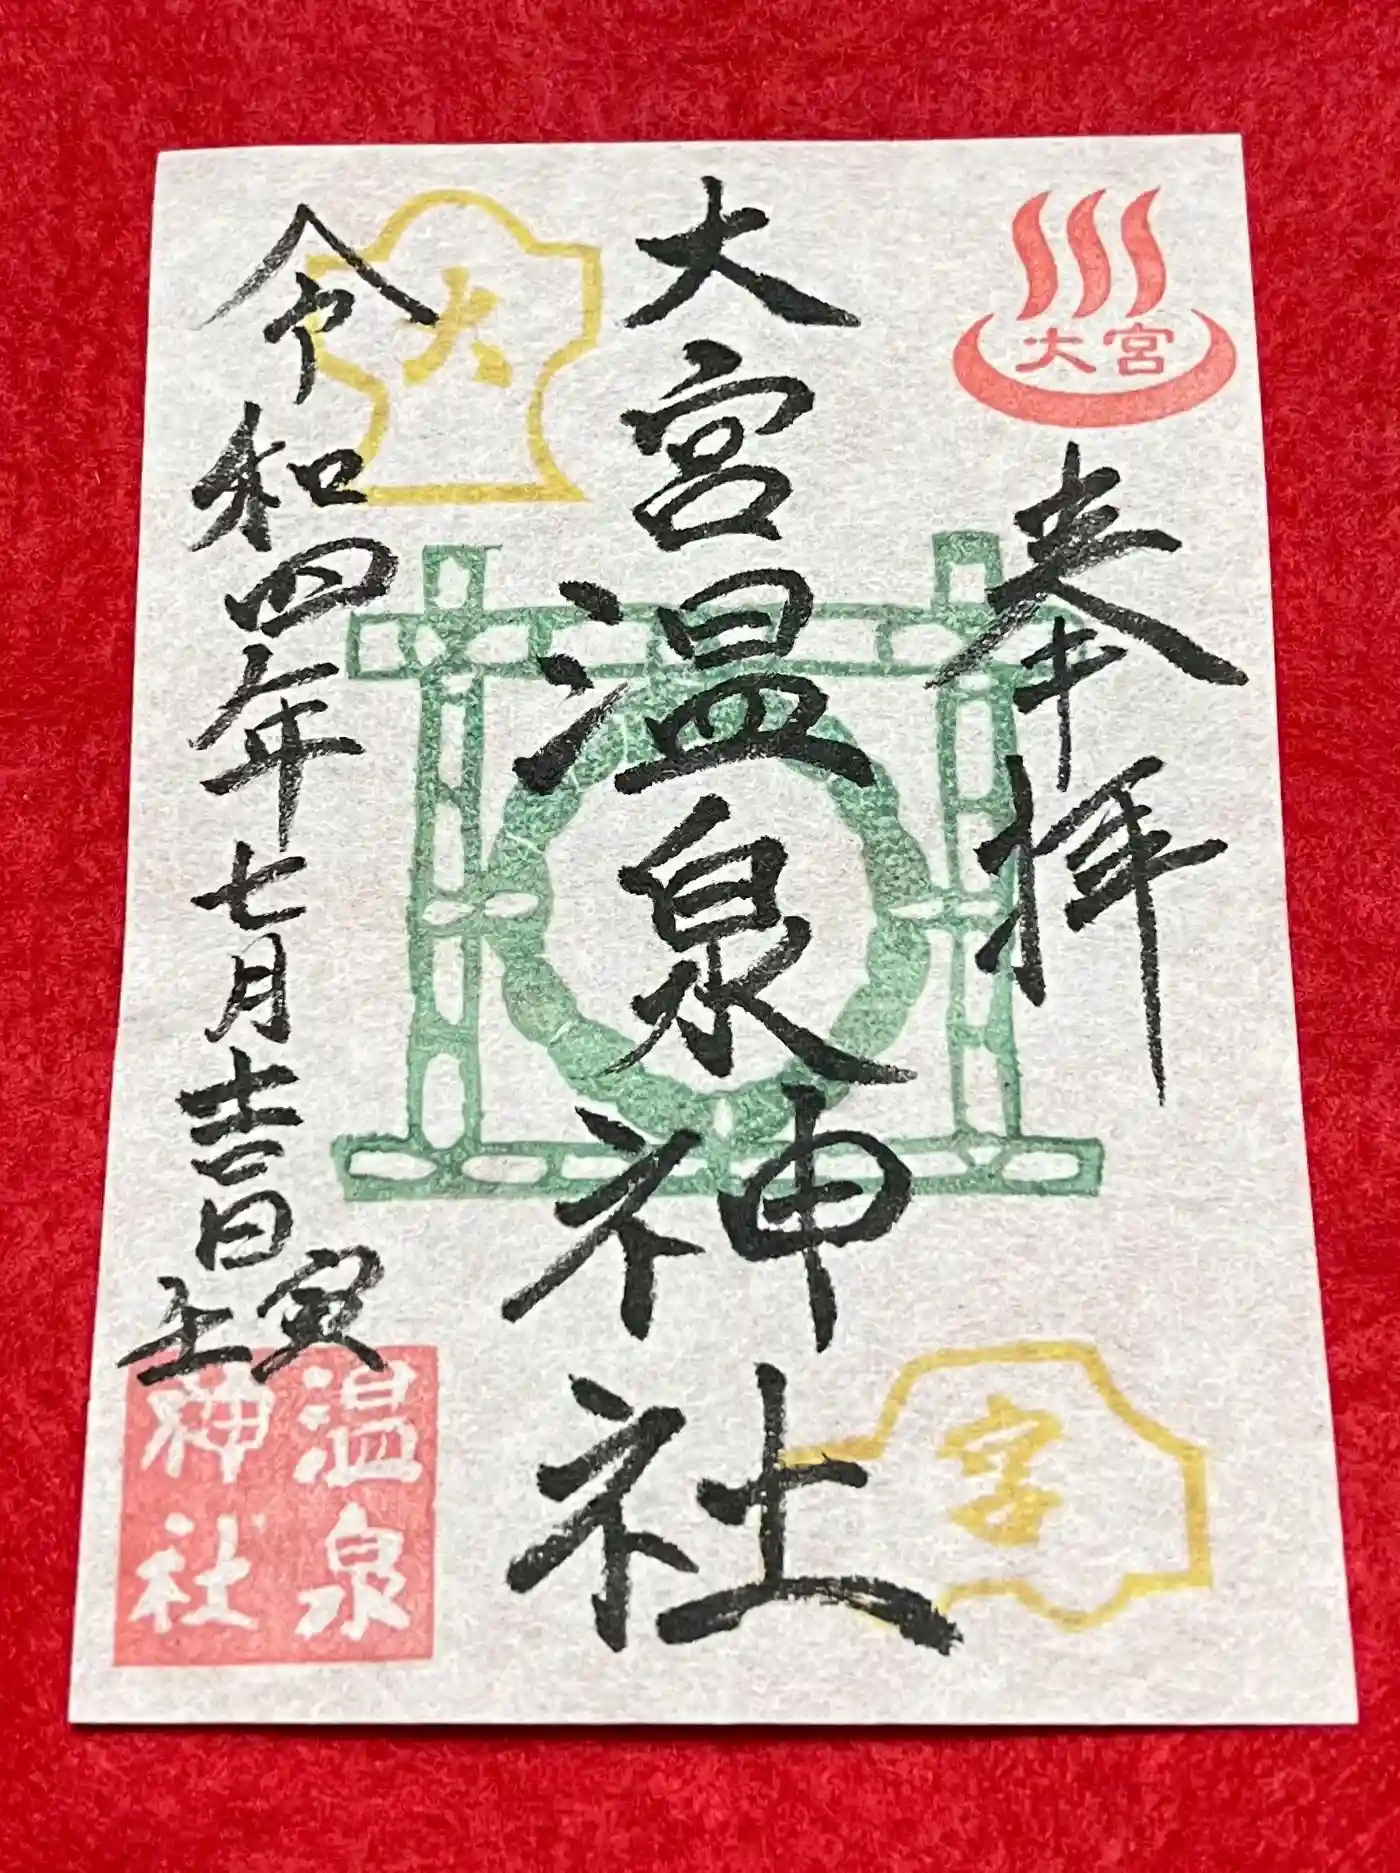 大宮
奉拝
大宮温泉神社
大
宮
令和四年七月吉日
壬寅
温泉
神社